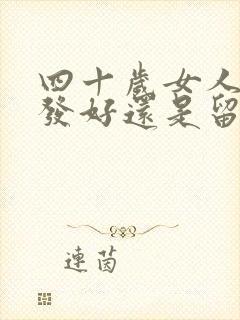 四十歲女人
發好還是留
連茵